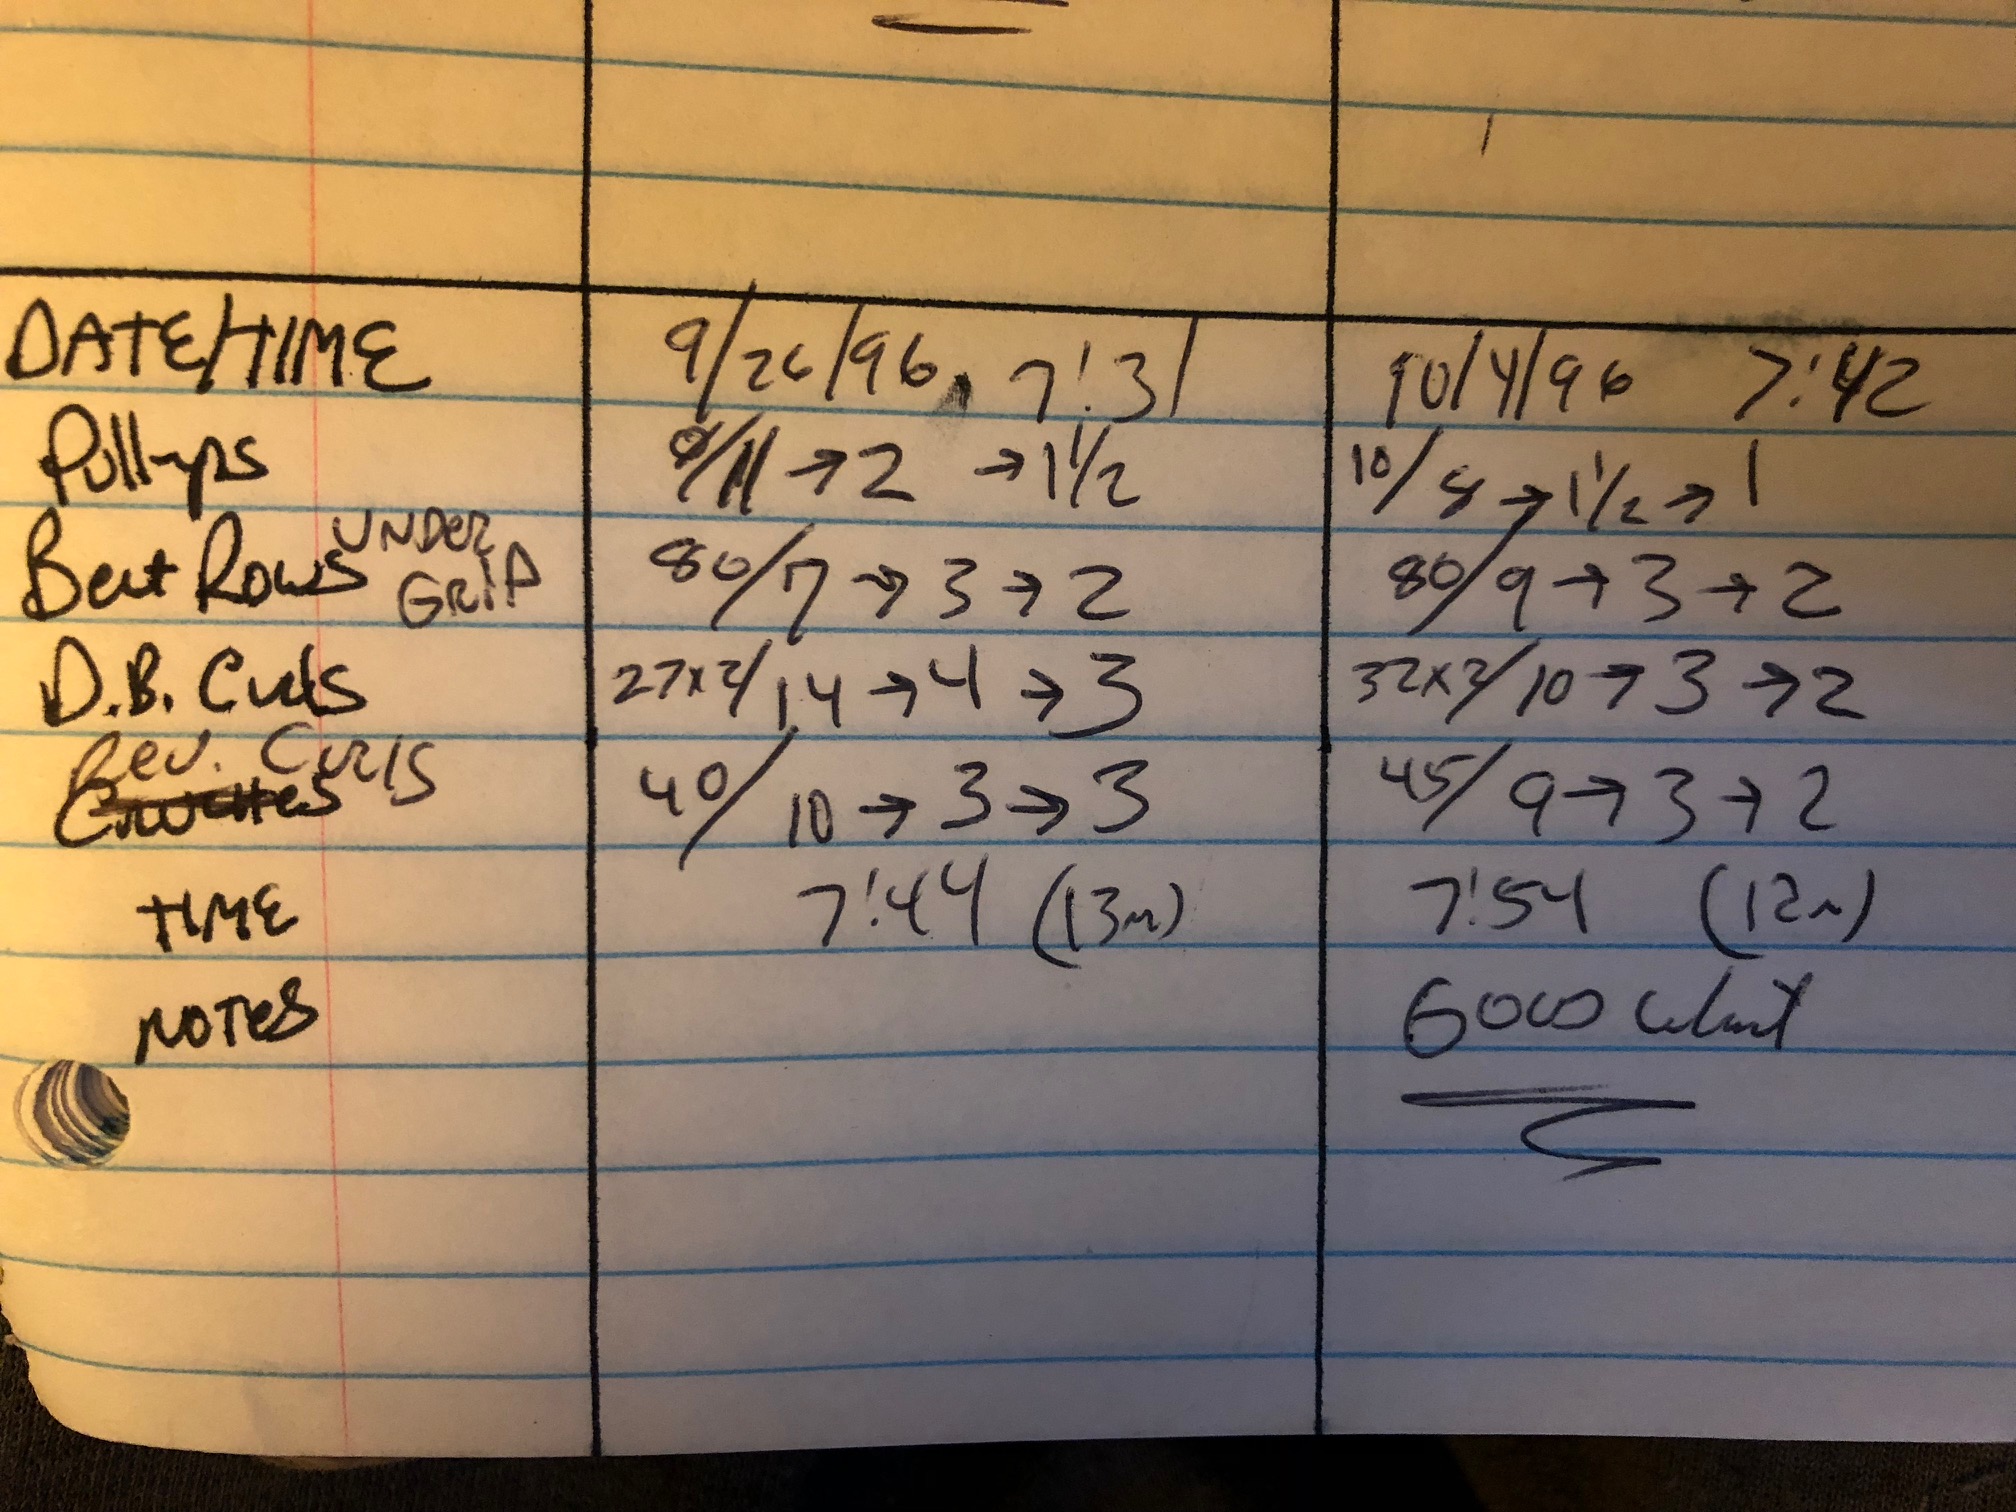 DATE/TIME 9/26/96 7:31 10/4/96 7:42
Pullups 0/11 → 2 → 1 1/2 10/8 → 1 1/2 → 1
Bent Rows UNDER GRIP 80/7 → 3 → 2 80/9 → 3 → 2
D.B. Curls 27x2/14 → 4 → 3 32x2/10 → 3 → 2
Rev. Curls 40/10 → 3 → 3 45/9 → 3 → 2
TIME 7:44 (13m) 7:54 (12m)
NOTES GOOD